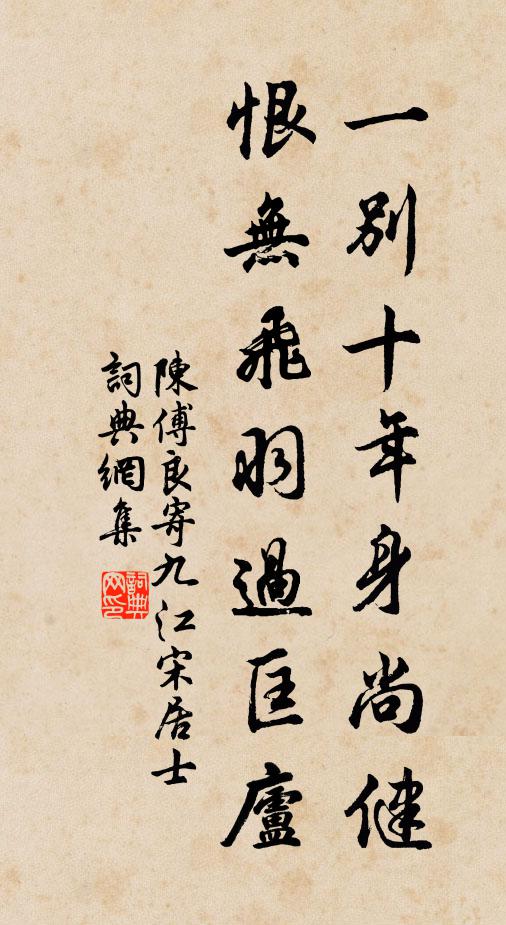 一別十年身尚健
恨無飛羽過匡廬
陳傅良寄九江宋居士
詞典網集
詞典网印